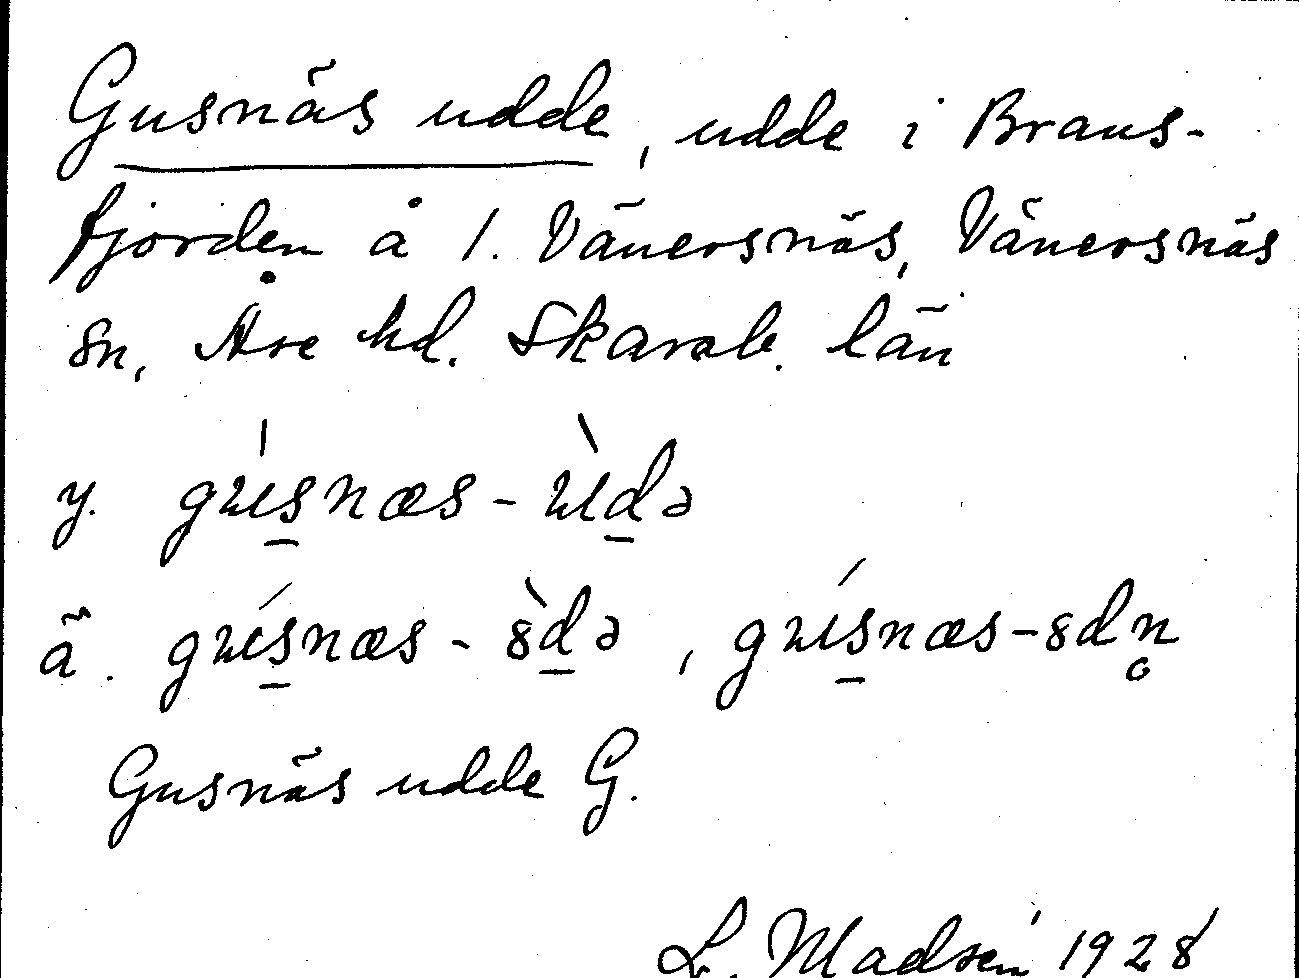 Gusnäs udde, udde i Braus-
fjorden å 1. Vänersnäs, Vänersnäs
sn, Åse hd. Skarab. län
y. gɯ́s̲næs - ɯ̀d̲ə
ä. gɯ́s̲næs - 8̀d̲ə, gɯ́s̲næs-8dn̥
Gusnäs udde G.
L. Madsén 1928